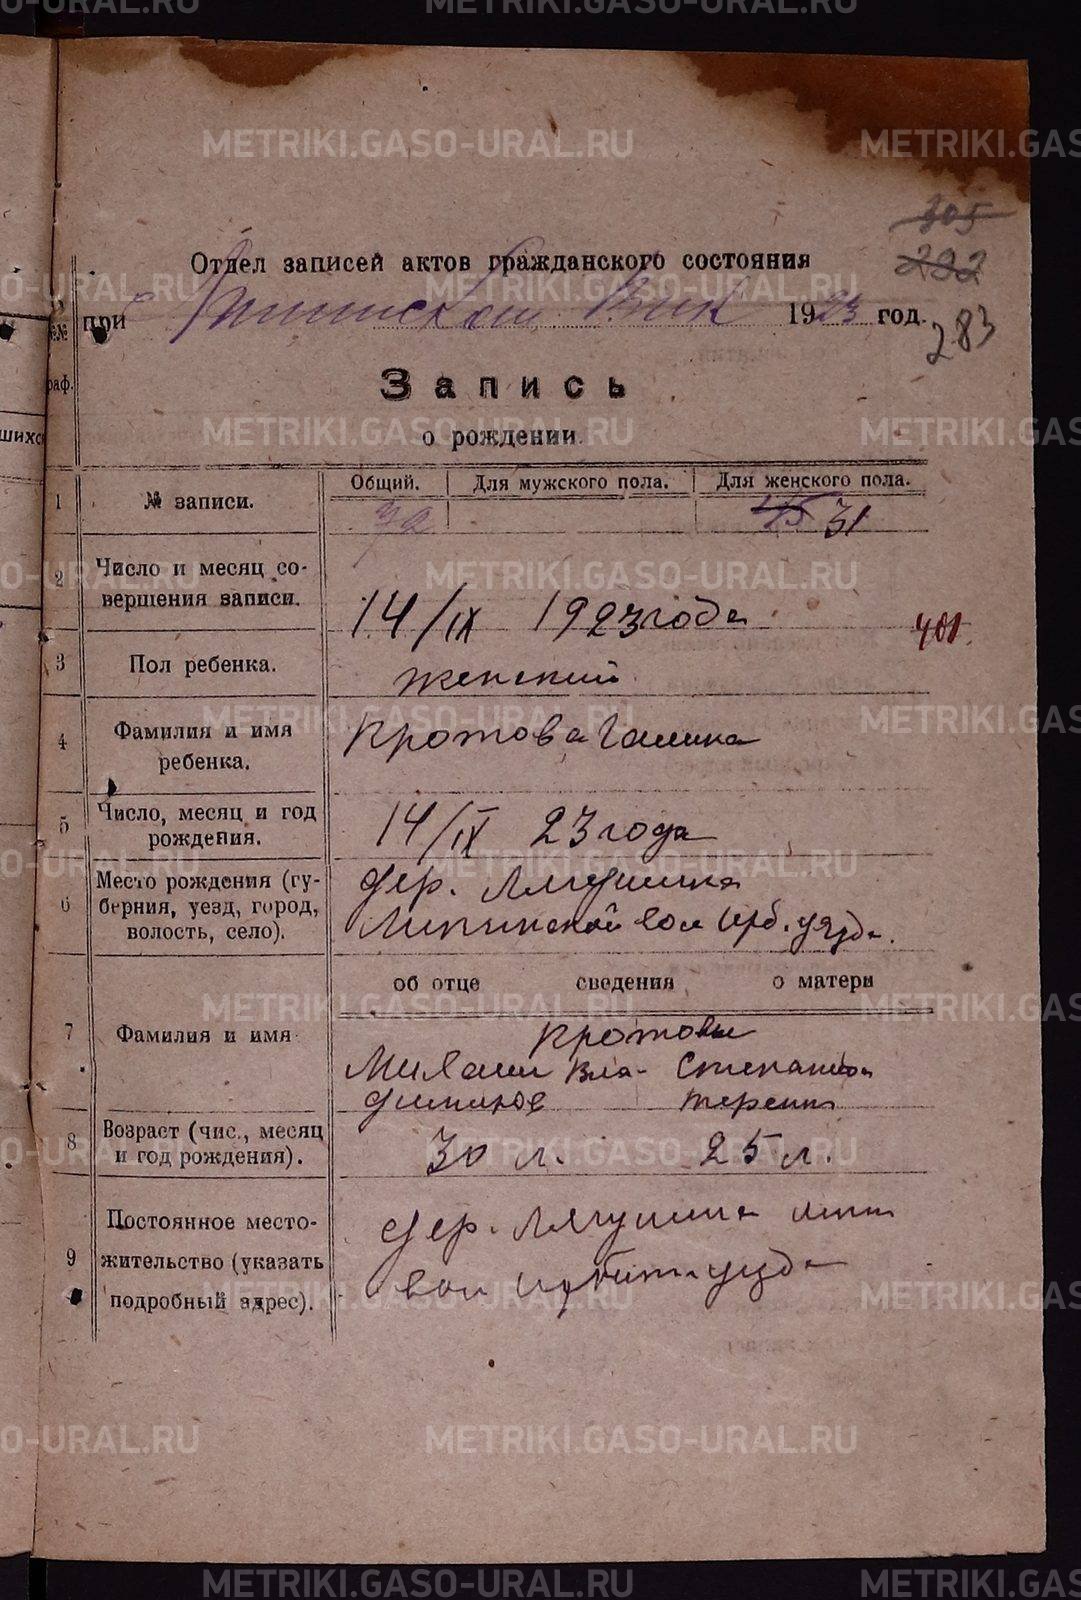 METRIKI.GASO-URAL.RU
305
222
Отдел записей актов гражданского состояния
при Вик 1923 год.
283
№№
раф.
Запись
о рождении.
шихс
Общий. Для мужского пола. Для женского пола.
1 № записи. 31
2 Число и месяц со-
вершения записи. 14/IX 1923 года
401
3 Пол ребенка. женский
4 Фамилия и имя
ребенка. Кротова Галина
5 Число, месяц и год
рождения. 14/IX 23 года
6 Место рождения (гу-
берния, уезд, город,
волость, село). дер. Лягушина
вол Ирб. уезда.
об отце сведения о матери
7 Фамилия и имя Кротовы
Михаил Вла- Степанида
димиров
8 Возраст (чис., месяц
и год рождения). 30 л. 25 л.
9 Постоянное место-
жительство (указать
подробный адрес). дер. Лягушина
вол Ирбит. уезда